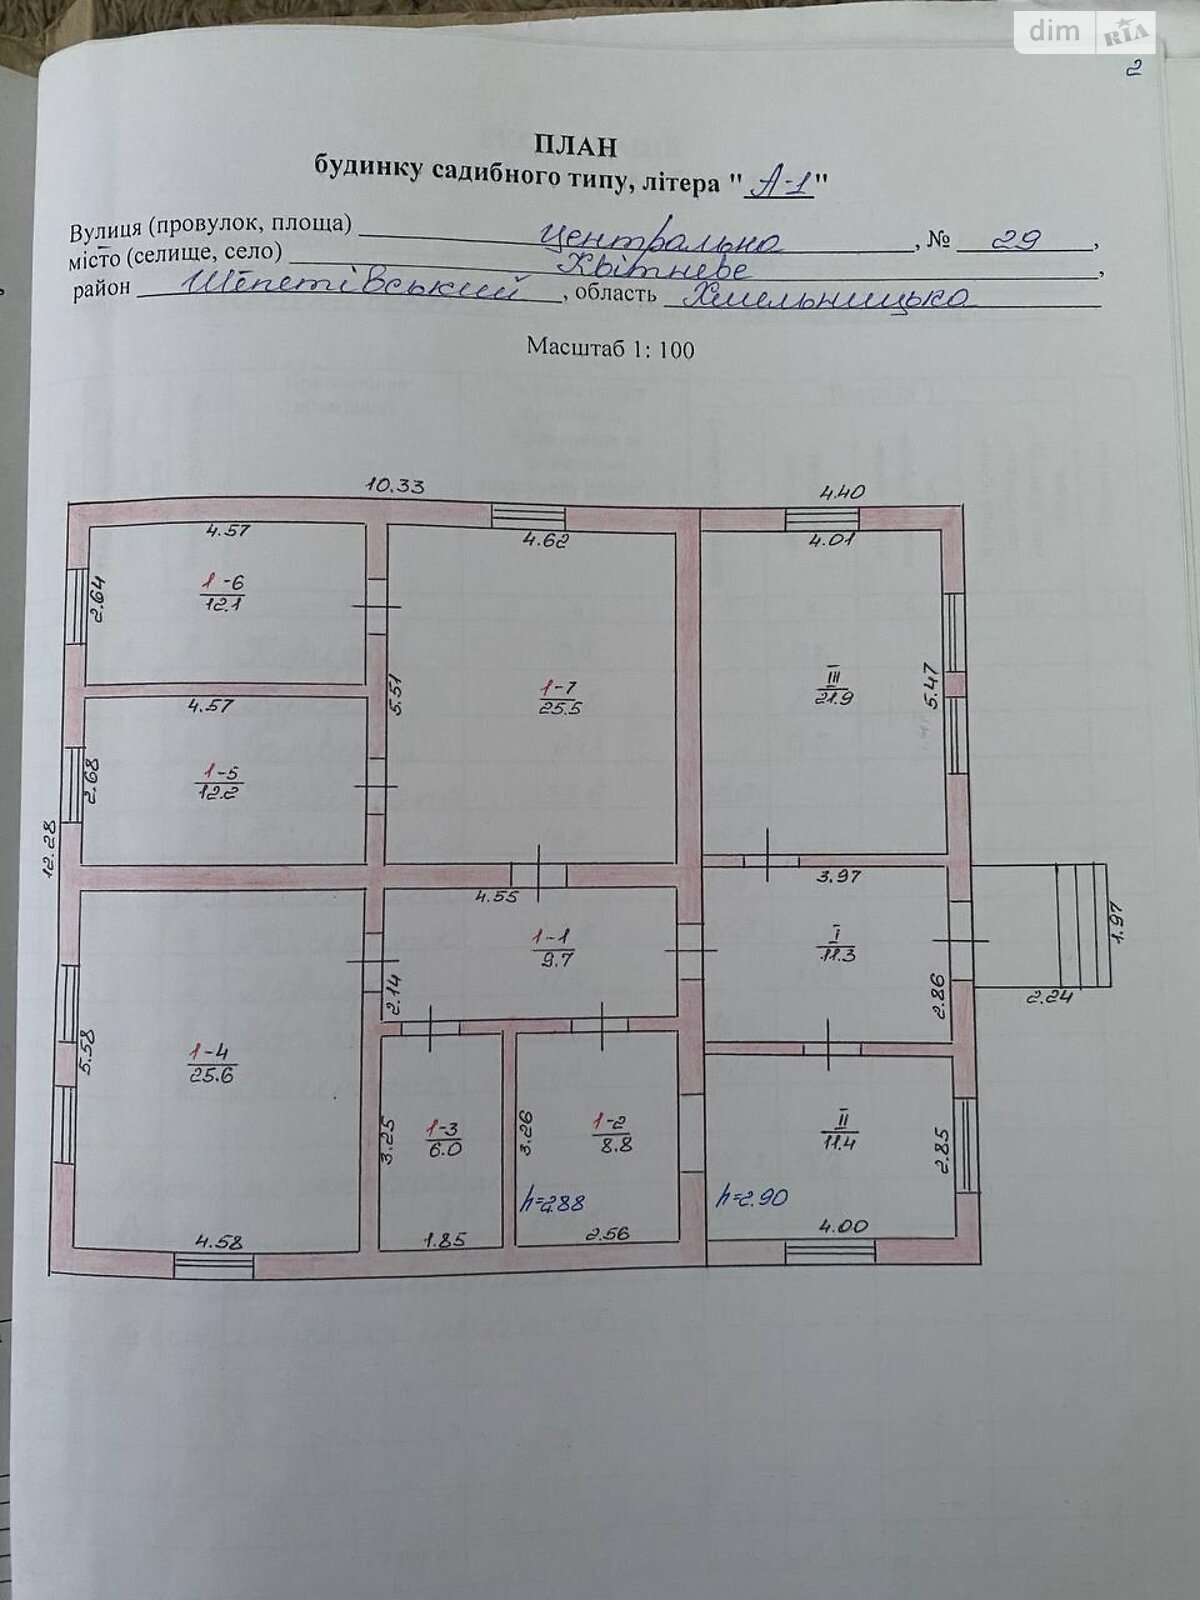 dim RIA
2
ПЛАН
будинку садибного типу, літера " А-1 "
Вулиця (провулок, площа) Центрально, № 29,
місто (селище, село) Квітневе,
район Шепетівський, область Хмельницько
Масштаб 1: 100
10.33 4.40
4.57 4.62 4.01
2.64 1-6 12.1
5.51 1-7 25.5
III 21.9 5.47
4.57
2.68 1-5 12.2
12.28
4.55 3.97
1-1 9.7
I 11.3
1.97
2.14 2.86 2.24
5.58 1-4 25.6
3.25 1-3 6.0
3.26 1-2 8.8
II 11.4 2.85
h=2.88 h=2.90
4.58 1.85 2.56 4.00